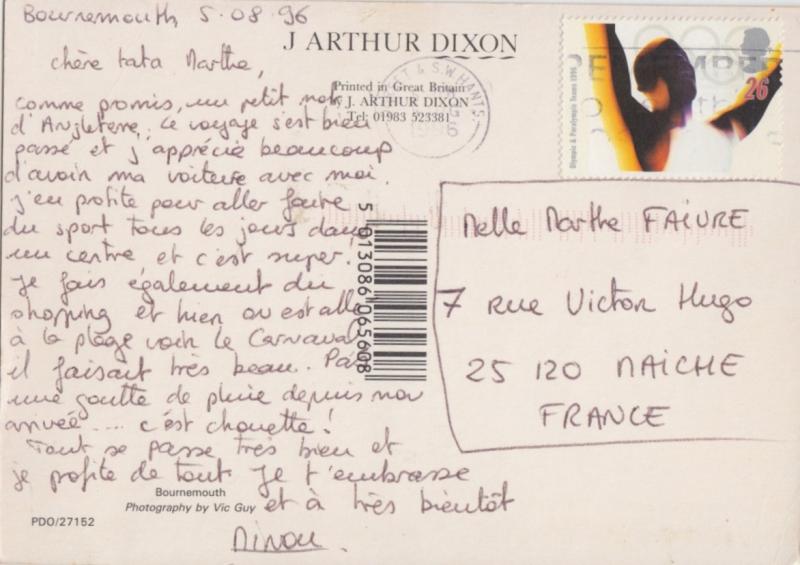 Bournemouth 5.08.96
chère tata Marthe,
comme promis, un petit mot
d'Angleterre, le voyage s'est bien
passé et j'apprécie beaucoup
d'avoir ma voiture avec moi.
j'en profite pour aller faire
du sport tous les jours dans
un centre et c'est super!
je fais également du
shopping et hier on est allé
à la plage voir le Carnaval
il faisait très beau. Pas
une goutte de pluie depuis mon
arrivée .... c'est chouette!
Tout se passe très bien et
je profite de tout je t'embrasse
et à très bientôt
Ninou.
J ARTHUR DIXON
Printed in Great Britain
by J. ARTHUR DIXON
Tel: 01983 523381
& S.W. HANTS.
1996
Olympic & Paralympic Teams 1996
26
5 013086 065608
Melle Marthe FAIVRE
7 rue Victor Hugo
25 120 MAICHE
FRANCE
Bournemouth
Photography by Vic Guy
PDO/27152